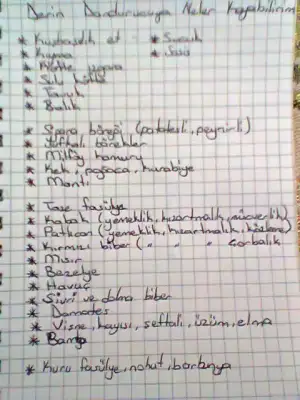 Derin Dondurucuya Neler Koyabilirim
* Kuşbaşılık et * Sucuk
* Kıyma * Sosis
* Köfte ızgara
* Sulu köfte
* Tavuk
* Balık
* Sigara böreği (patatesli, peynirli)
* börekler
* Milföy hamuru
* Kek, poğaca, kurabiye
* Mantı
* Taze fasülye
* Kabak (yemeklik, kızartmalık, mücverlik)
* Patlıcan (yemeklik, kızartmalık, közleme)
* Kırmızı biber ( " " " Çorbalık
* Mısır
* Bezelye
* Havuç
* Sivri ve dolma biber
* Domates
* Vişne, kayısı, şeftali, üzüm, elma
* Bamya
* Kuru fasülye, nohut, barbunya